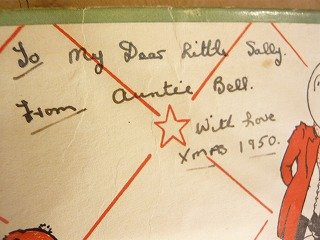 To My Dear Little Sally.
From Auntie Bell.
With love
XMAS 1950.